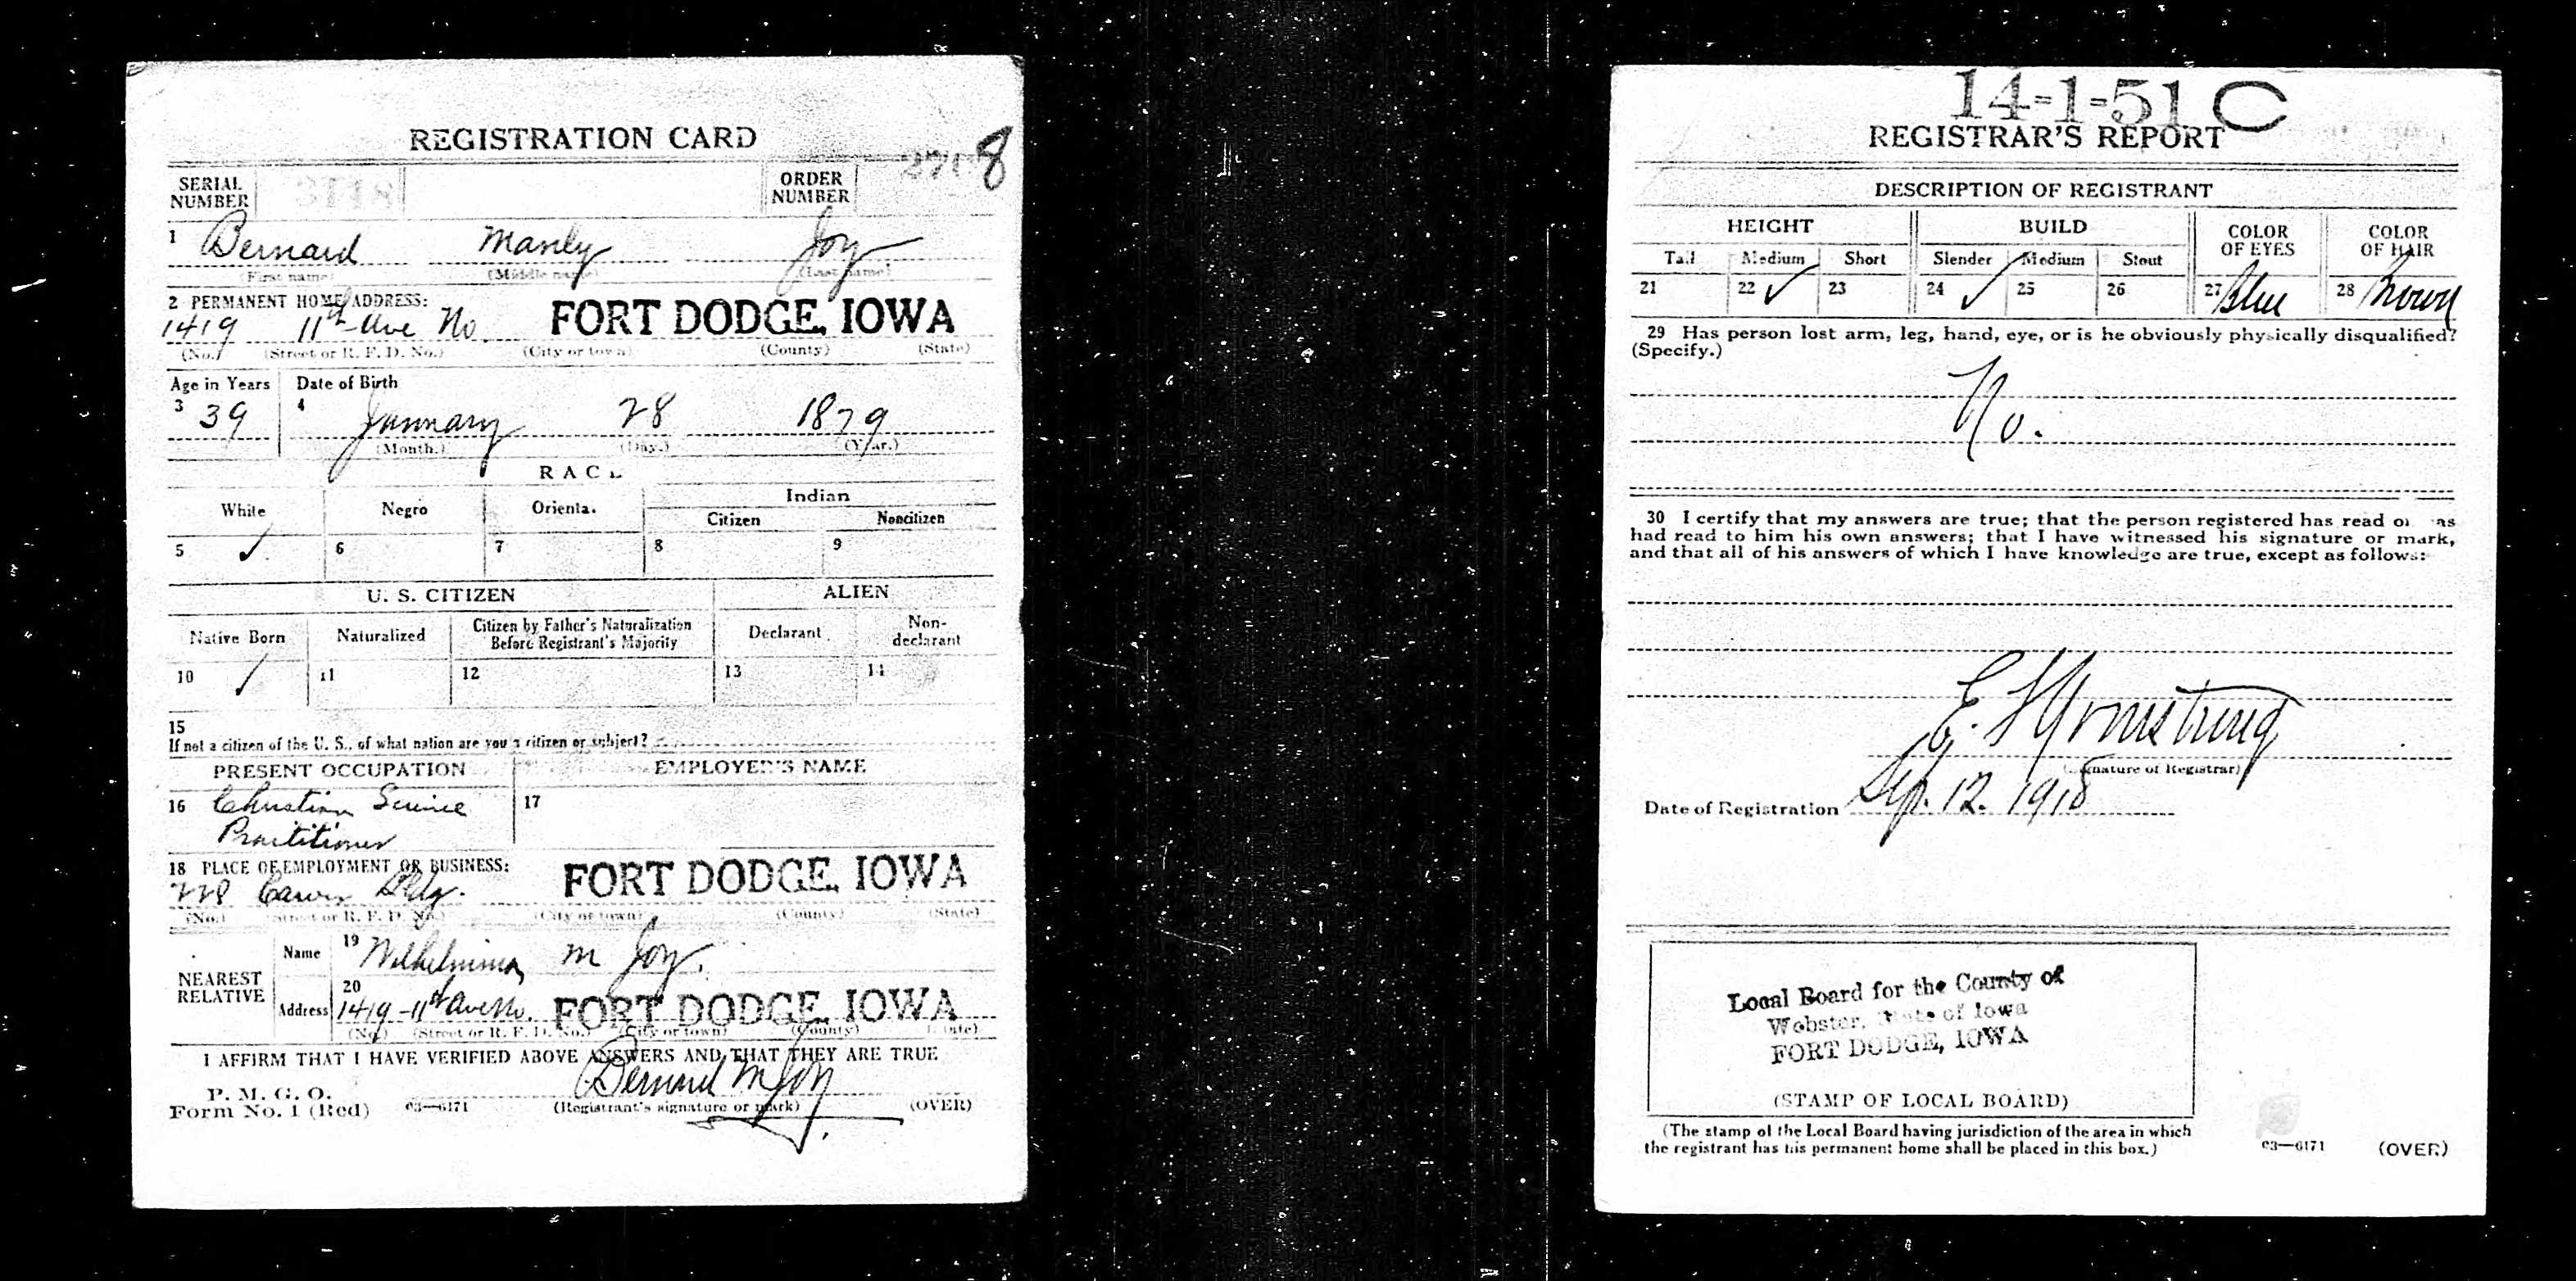 REGISTRATION CARD
SERIAL NUMBER
ORDER NUMBER 8
1 Bernard Manly Joy
(First name) (Middle name) (Last name)
2 PERMANENT HOME ADDRESS:
1419 11th Ave No. FORT DODGE, IOWA
(No.) (Street or R. F. D. No.) (City or town) (County) (State)
Age in Years Date of Birth
3 39 4 January 28 1879
(Month.) (Day.) (Year.)
RACE
White Negro Oriental Indian
Citizen Noncitizen
5 ✓ 6 7 8 9
U. S. CITIZEN ALIEN
Native Born Naturalized Citizen by Father's Naturalization Before Registrant's Majority Declarant Non-declarant
10 ✓ 11 12 13 14
15
If not a citizen of the U. S., of what nation are you a citizen or subject?
PRESENT OCCUPATION EMPLOYER'S NAME
16 Christian Science 17
Practitioner
18 PLACE OF EMPLOYMENT OR BUSINESS:
228 Bldg. FORT DODGE, IOWA
(No.) (Street or R. F. D. No.) (City or town) (County) (State)
NEAREST RELATIVE
Name 19 Wilhelmina M Joy.
Address 20 1419-11th Ave No. FORT DODGE, IOWA
(No.) (Street or R. F. D. No.) (City or town) (County) (State)
I AFFIRM THAT I HAVE VERIFIED ABOVE ANSWERS AND THAT THEY ARE TRUE
P. M. G. O.
Form No. 1 (Red) 03—6171 Bernard M Joy
(Registrant's signature or mark) (OVER)
14-1-51 C
REGISTRAR'S REPORT
DESCRIPTION OF REGISTRANT
HEIGHT BUILD COLOR OF EYES COLOR OF HAIR
Tall Medium Short Slender Medium Stout
21 22 ✓ 23 24 ✓ 25 26 27 Blue 28 Brown
29 Has person lost arm, leg, hand, eye, or is he obviously physically disqualified?
(Specify.)
No.
30 I certify that my answers are true; that the person registered has read or has
had read to him his own answers; that I have witnessed his signature or mark,
and that all of his answers of which I have knowledge are true, except as follows:
E. Armstrong
(Signature of Registrar)
Date of Registration Sep. 12. 1918
Local Board for the County of
Webster, State of Iowa
FORT DODGE, IOWA
(STAMP OF LOCAL BOARD)
(The stamp of the Local Board having jurisdiction of the area in which
the registrant has his permanent home shall be placed in this box.)
03—6171 (OVER)